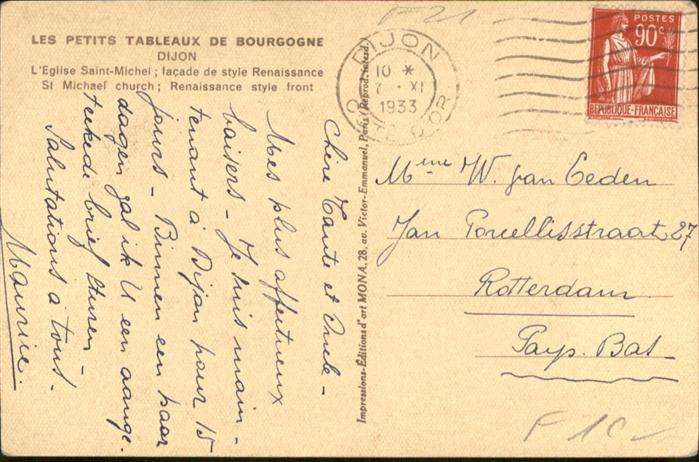 LES PETITS TABLEAUX DE BOURGOGNE
DIJON
L'Eglise Saint-Michel ; façade de style Renaissance
St Michael church ; Renaissance style front
F 21
DIJON
10 *
7 · XI
1933
COTE D'OR
POSTES
90c
REPUBLIQUE FRANÇAISE
Chère Tante et Oncle -
Mes plus affectueux
baisers - Je suis main-
tenant à Dijon pour 15
jours - Binnen een paar
dagen zal ik U een aange-
tekende brief sturen -
Salutations à tous -
Maurice.
Impressions-Éditions d'art MONA, 28, av. Victor-Emmanuel, Paris (Reprod. interd.)
Mme W. van Eeden
Jan Porcellisstraat 27
Rotterdam
Pays-Bas
F 10